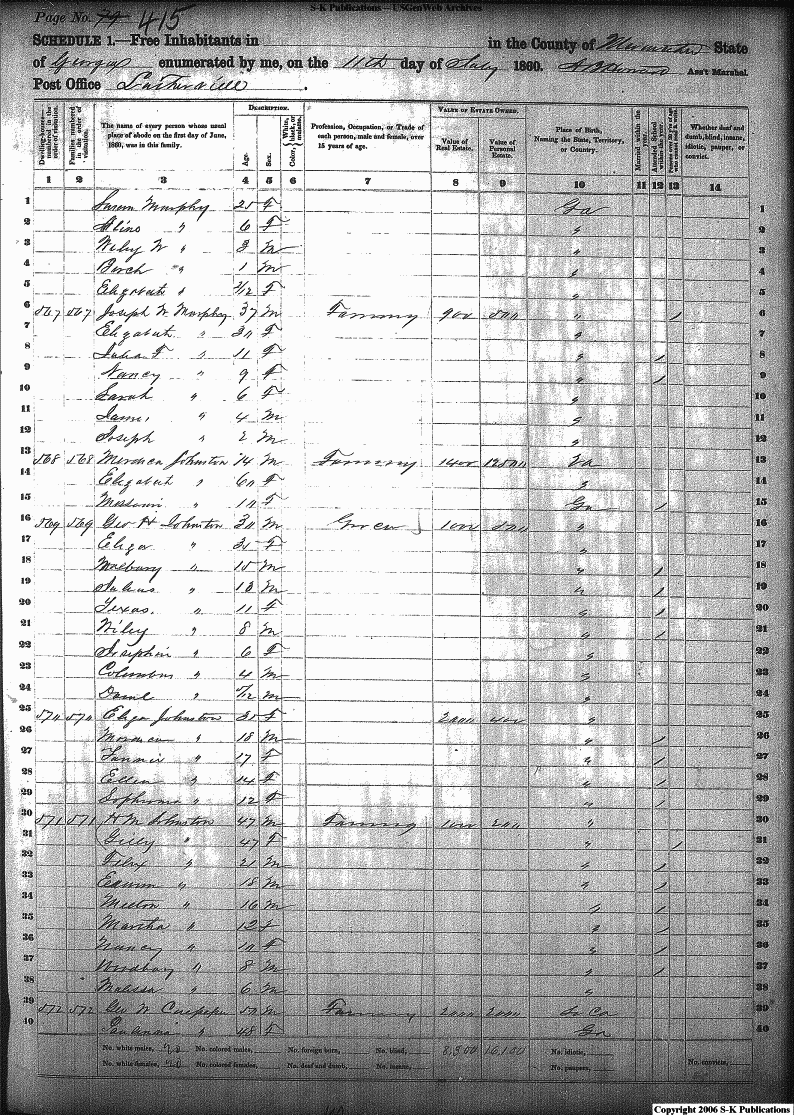 S-K Publications – USGenWeb Archives
Page No. 79 415
SCHEDULE 1.—Free Inhabitants in in the County of State
of Georgia enumerated by me, on the 11th day of July 1860. Ass't Marshal.
Post Office
Dwelling-houses—numbered in the order of visitation.
Families numbered in the order of visitation.
The name of every person whose usual place of abode on the first day of June, 1860, was in this family.
DESCRIPTION.
Age.
Sex.
Color, White, black, or mulatto.
Profession, Occupation, or Trade of each person, male and female, over 15 years of age.
VALUE OF ESTATE OWNED.
Value of Real Estate.
Value of Personal Estate.
Place of Birth, Naming the State, Territory, or Country.
Married within the year.
Attended School within the year.
Whether deaf and dumb, blind, insane, idiotic, pauper, or convict.
1 2 3 4 5 6 7 8 9 10 11 12 13 14
1 Susan Murphy 25 F Ga 1
2 " 6 F " 2
3 Wiley W " 3 m " 3
4 " 1 m " 4
5 Elizabeth " 2/12 F " 5
6 567 567 Joseph W Murphy 37 m Farming 900 500 " / 6
7 Elizabeth " 30 F " 7
8 Julia F " 11 F " / 8
9 Nancy " 9 F " / 9
10 Sarah " 6 F " 10
11 James " 4 m " 11
12 Joseph " 2 m " 12
13 568 568 Johnston 74 m Farming 1400 12500 13
14 Elizabeth " 60 F " 14
15 Missouri " 10 F Ga / 15
16 569 569 Geo H Johnston 30 m 1000 500 " 16
17 Eliza " 35 F " 17
18 " 15 m " / 18
19 Julius " 13 m " / 19
20 Texas " 11 F " / 20
21 Wiley " 8 m " / 21
22 Josephin " 6 F " 22
23 Columbus " 4 m " 23
24 " m " 24
25 570 570 Eliza Johnston 35 F 2000 400 " 25
26 " 18 m " / 26
27 Fannie " 17 F " / 27
28 Ellen " 14 F " / 28
29 Sophronia " 12 F " / 29
30 571 571 H M Johnston 47 m Farming 1000 200 " 30
31 Gilly " 47 F " / 31
32 Felix " 21 m " / 32
33 Edwin " 18 m " / 33
34 Milton " 16 m " / 34
35 Martha " 12 F " / 35
36 Nancy " 10 F " / 36
37 Woodbury " 8 m " / 37
38 Malissa " 6 m " 38
39 572 572 Geo W Culpeper 50 m Farming 2000 2000 So Ca 39
40 " 48 F Ga 40
No. white males, 20 No. colored males, No. foreign born, No. blind, 8,500 16,100 No. idiotic,
No. white females, 20 No. colored females, No. deaf and dumb, No. insane, No. paupers, No. convicts,
Copyright 2006 S-K Publications